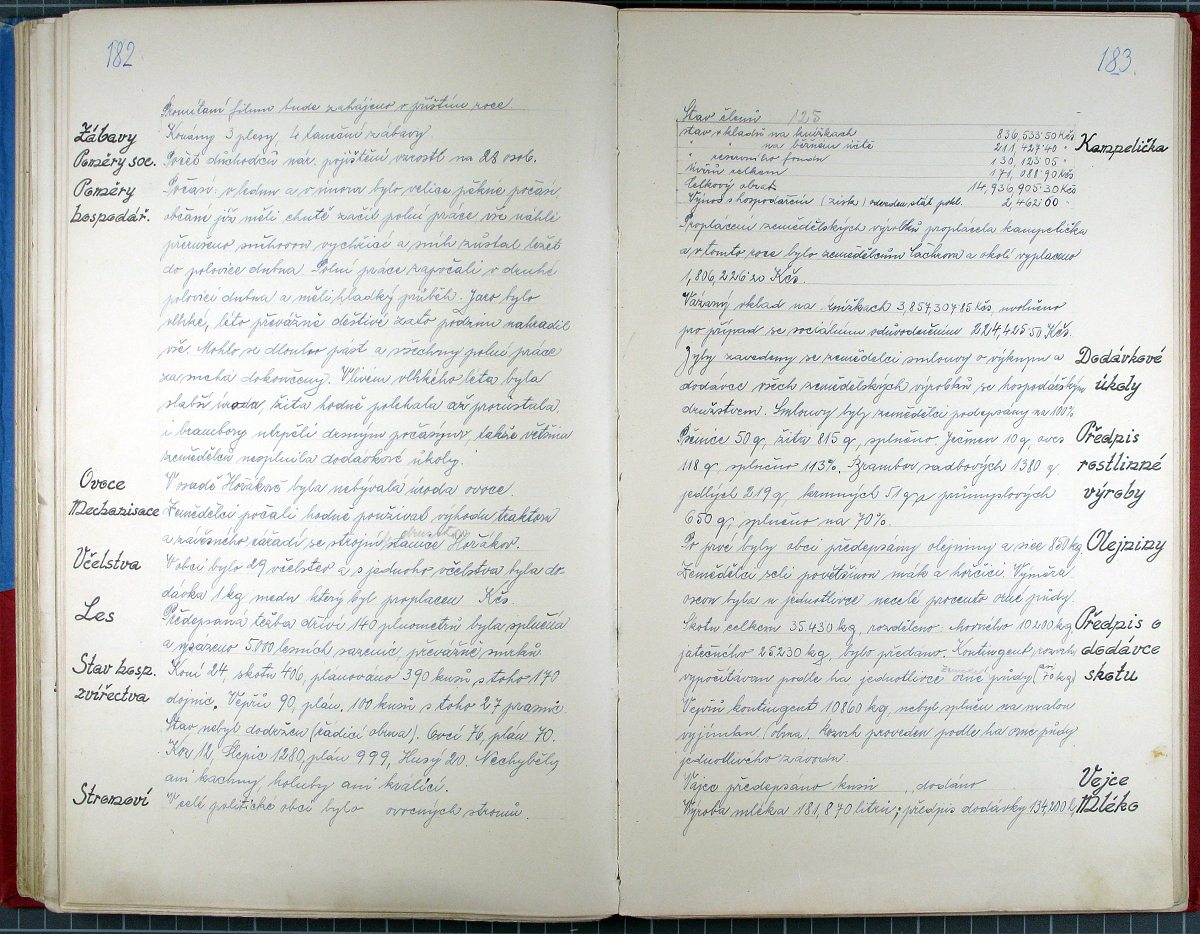 182
Promítání filmu bude zahájeno v příštím roce
Zábavy Konány 3 plesy, 4 taneční zábavy
Poměry soc. Počet důchodců nár. pojištění vzrostl na 28 osob.
Poměry Počasí: v lednu a v únoru bylo velice pěkné počasí
hospodář. občani již měli chutě začít polní práce, vše náhle
přerušeno sněhovou vychřicí a sníh zůstal ležet
do polovice dubna. Polní práce započali v druhé
polovici dubna a měli hladký průběh. Jaro bylo
vlhké, léto převážně deštivé zato podzim nahradil
vše. Mohlo se dlouho pást a všechny polní práce
za sucha dokončeny. Vlivem vlhkého léta byla
slabší úroda, žita hodně polehala až prorůstala
i brambory utrpěli drsným počasým, takže většina
zemědělců nesplnila dodávkové úkoly.
Ovoce V osadě Hořákově byla nebývalá úroda ovoce.
Mechanisace Zemědělci počali hodně používat výhodu traktoru
a závěsného nářadí se strojní stanice Hořákov.
Včelstva V obci bylo 29 včelstev a s jednoho včelstva byla do-
dávka 1 kg medu který byl proplacen Kčs.
Les Předepsaná těžba dříví 140 plnometrů byla splněna
a vysázeno 5.000 lesních sazenic převážně smrků.
Stav hosp. Koní 24, skotu 406, plánováno 390 kusů s toho 170
zvířectva dojnic. Vepřů 90, plán. 100 kusů s toho 27 prasnic
Stav nebyl dodržen (řádící obrna). Ovcí 76, plán 70.
Koz 12, Slepic 1280, plán 999, Husy 20. Nechyběly
ani kachny, holuby ani králíci.
Stromoví V celé politické obci bylo ovocných stromů.
183.
Stav členů 125
stav vkladů na knížkách 836,533·50 Kčs Kampelička
" " na běžném účtě 211,427·40 "
" reservního fondu 130,125 05 "
úvěrů celkem 171,088·90 Kčs
Celkový obrat 14,936,905·30 Kčs
Výnos hospodaření (zisk) stát. pokl. 2,462·00 -
Proplácení zemědělských výrobků proplácela kampelička
a v tomto roce bylo zemědělcům Čachrova a okolí vyplaceno
1,806,226 20 Kčs.
Vázaný vklad na knížkách 3,857,307 85 Kčs uvolněno
pro případ se sociálním odůvodněním 224,425 50 Kčs.
Byly zavedeny se zemědělci smlouvy o výkupu a Dodávkové
dodávce všech zemědělských výrobků se hospodářským úkoly
družstvem. Smlouvy byly zemědělci podepsány na 100%
Pšenice 50 q, žita 815 q, splněno, Ječmen 10 q, oves Předpis
118 q, splněno 113%. Brambor sadbových 1380 q rostlinné
jedlých 219 q, krmných 51 q, průmyslových výroby
650 q, splněno na 70%.
Po prvé byly obci předepsány olejniny a sice 850 kg Olejniny
Zemědělci seli povětšinou mák a hořčici. Výměra
osevu byla u jednotlivce necelé procento orné půdy.
Skotu celkem 35.430 kg, rozděleno. Morného 10200 kg Předpis o
jatečného 25,230 kg, bylo předáno. Kontingent, rozvrh dodávce
vypočítáván podle ha jednotlivce orné půdy (70 kg) skotu
Vepřů kontingent 10860 kg, nebyl splněn na malou
vyjímku (obrna). Rozvrh proveden podle ha orné půdy
jednotlivého závodu.
Vajec předepsáno kusů , dodáno Vejce
Výroba mléka 181,870 litrů; předpis dodávky 134,200 l, Mléko